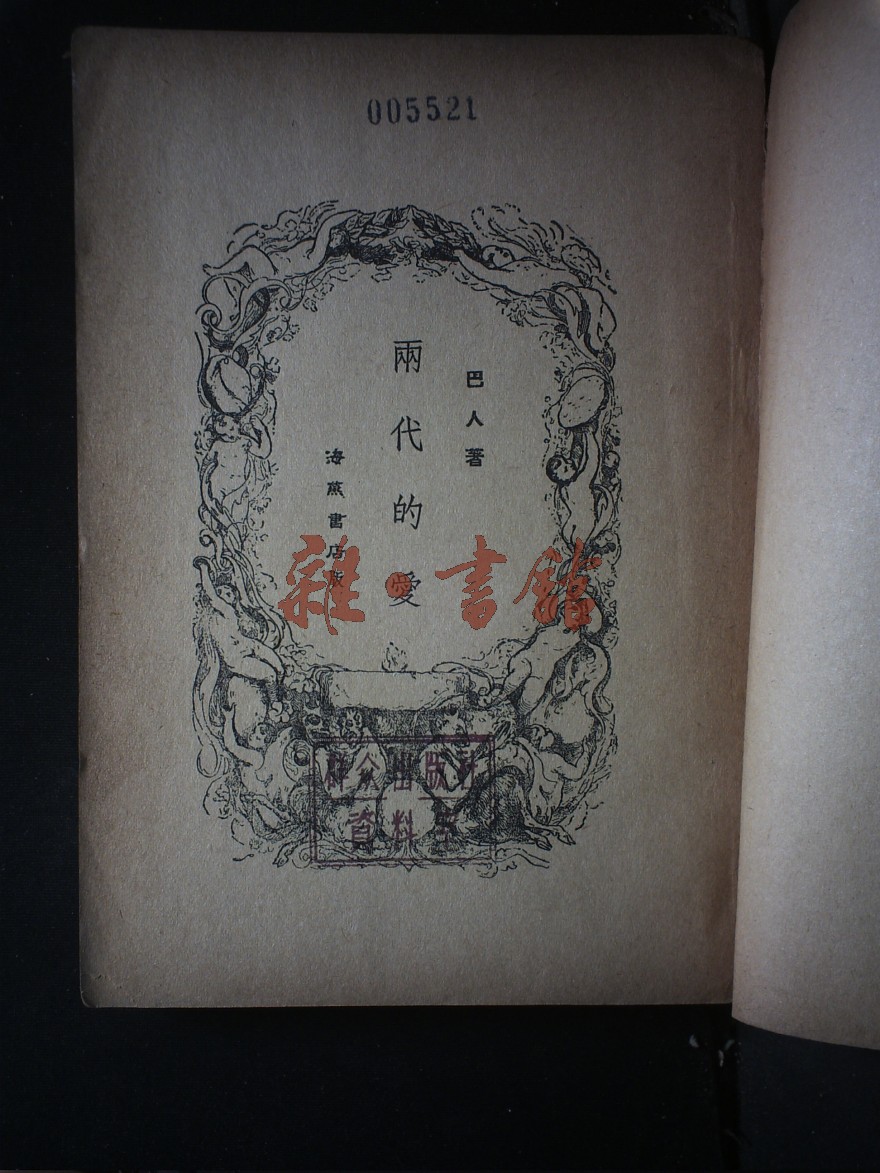 005521
巴人著
兩代的愛
海燕書店版
雜·書館
群众出版社
資料室